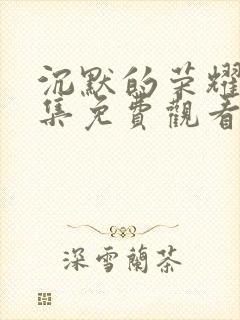 沉默的荣耀
集免費觀看
深雪蘭茶